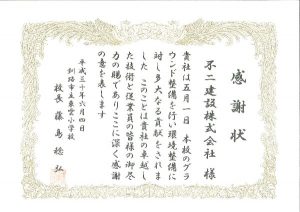 感謝状
不二建設株式会社 様
貴社は五月一日 本校のグラ
ウンド整備を行い環境整備に
対し多大なる貢献をされま
した このことは貴社の卓越し
た技術と従業員の皆様の御尽
力の賜でありここに深く感謝
の意を表します
平成三十年六月四日
釧路市立東雲小学校
校長 藤島 稔弘